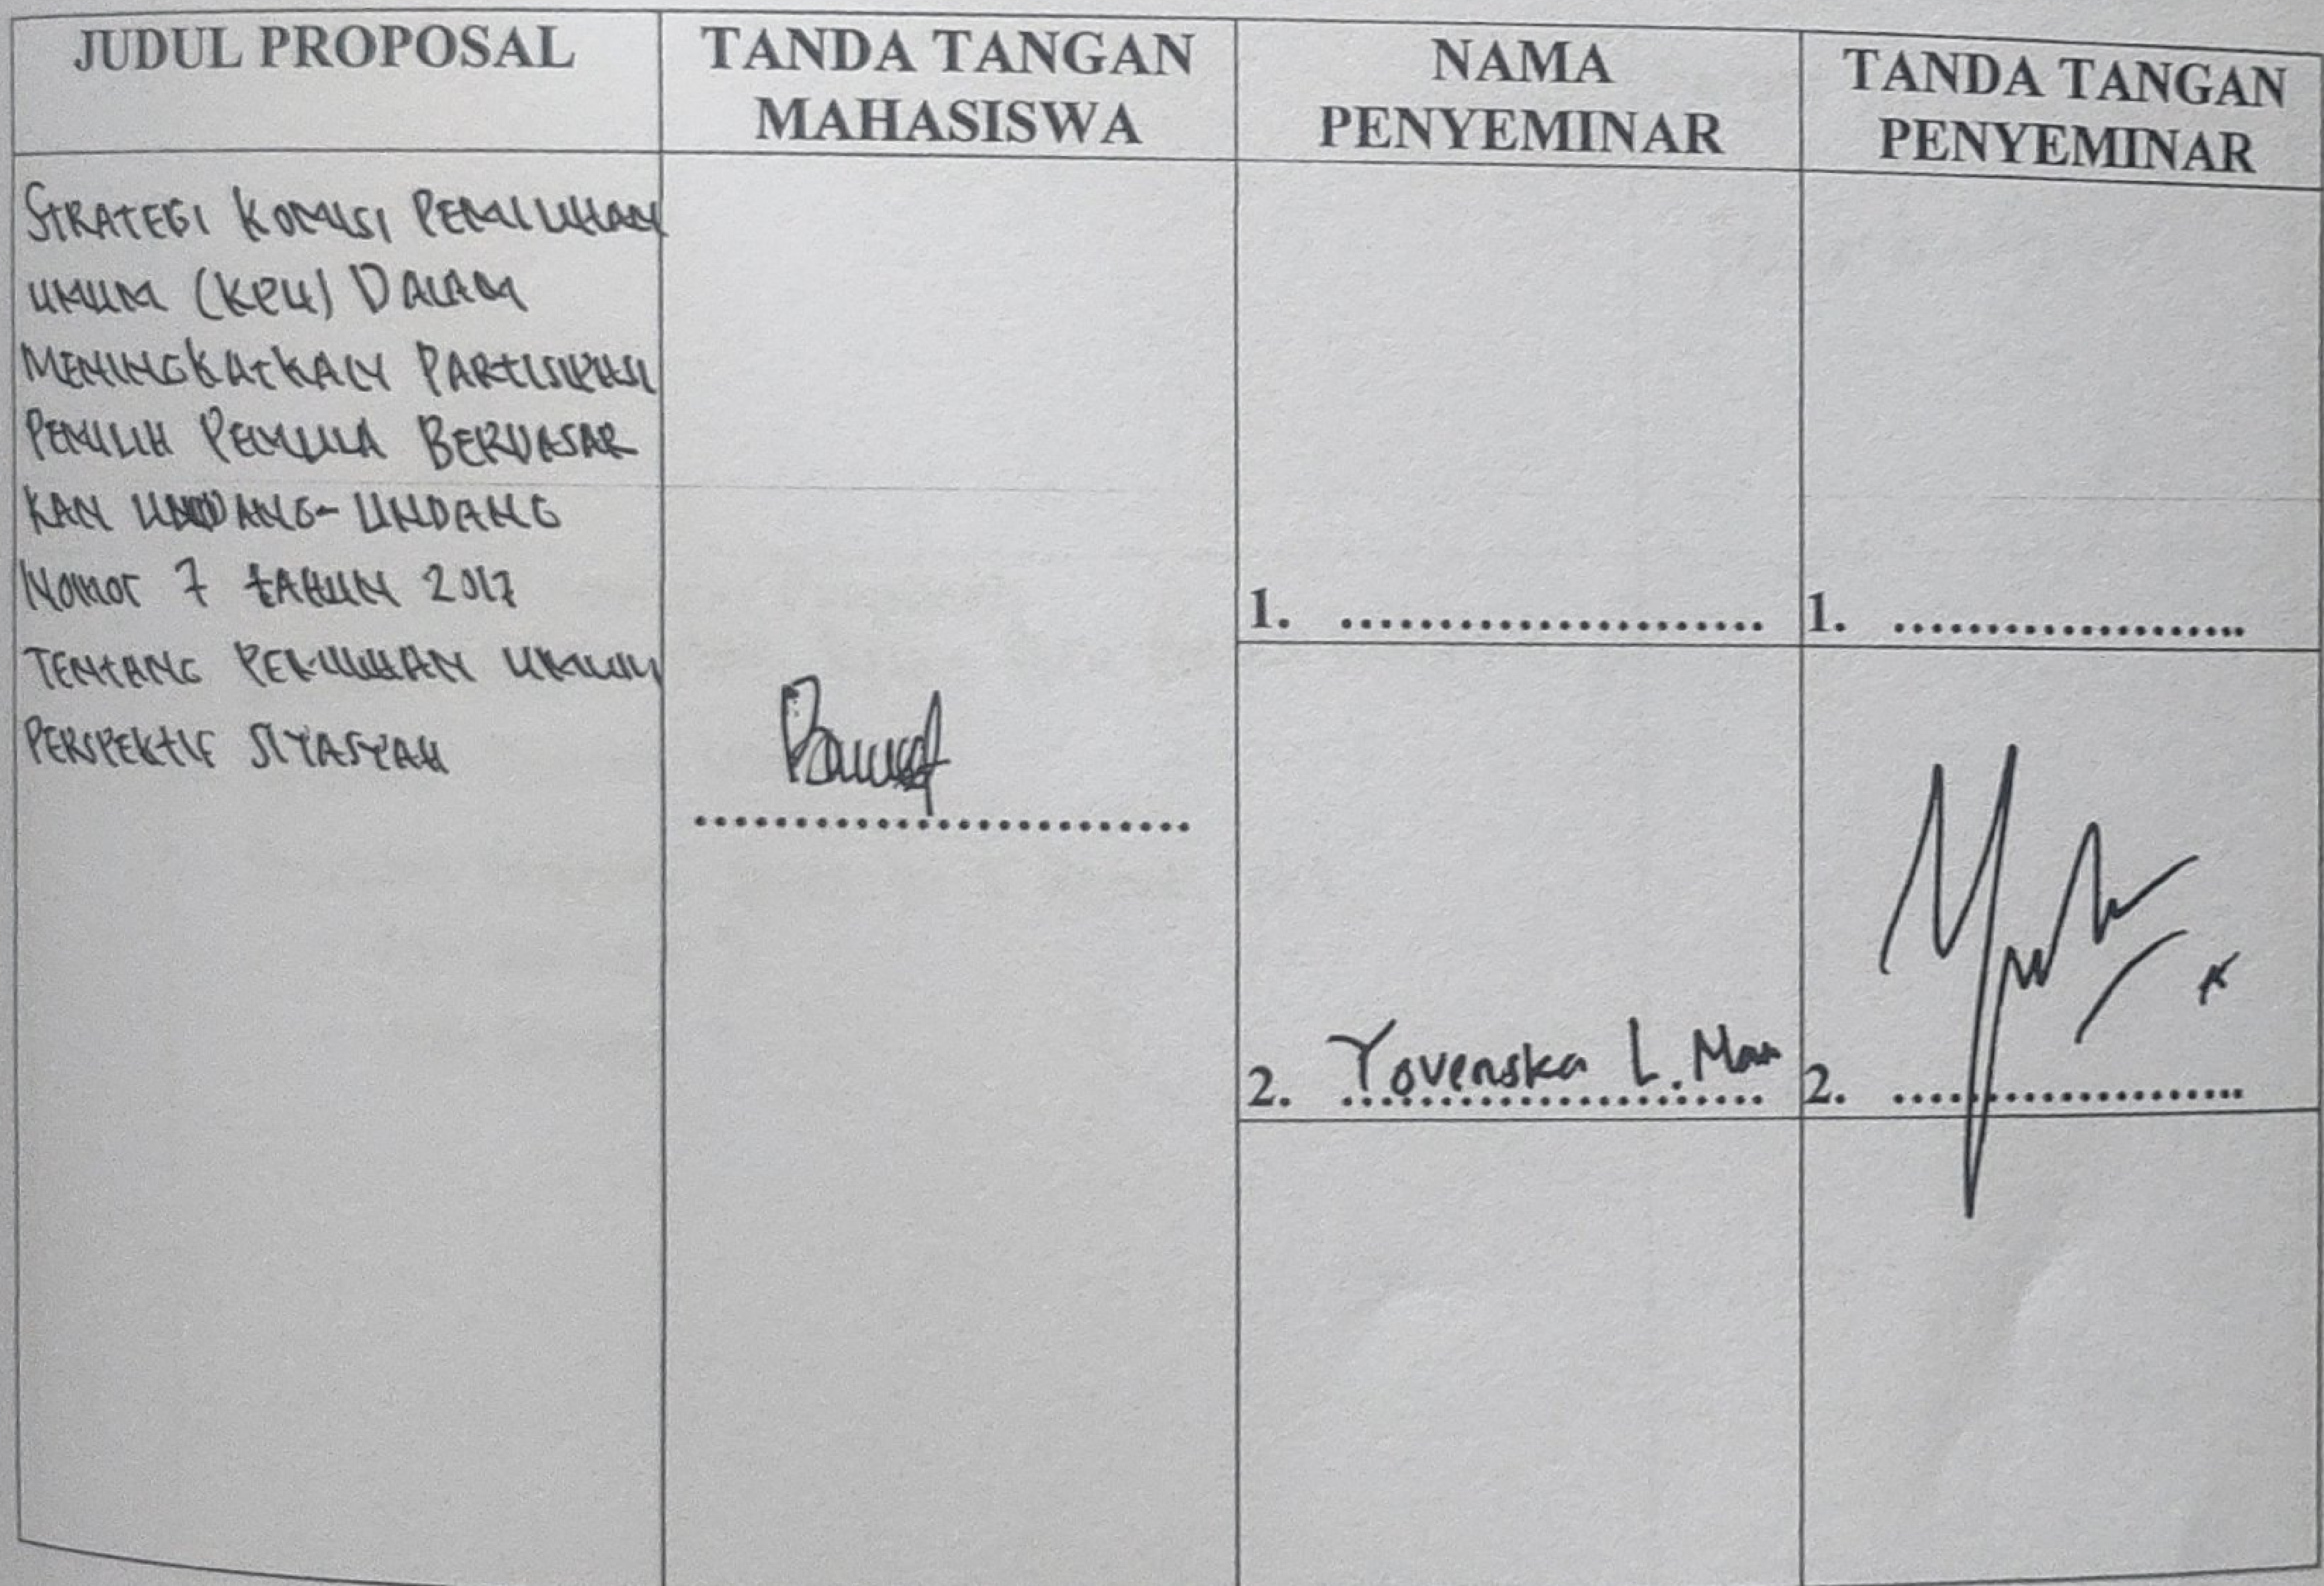 JUDUL PROPOSAL
TANDA TANGAN
MAHASISWA
NAMA
PENYEMINAR
TANDA TANGAN
PENYEMINAR
STRATEGI KOMISI PEMILIHAN
UMUM (KPU) DALAM
MENINGKATKAN PARTISIPASI
PEMILIH PEMULA BERDASAR
KAN UNDANG-UNDANG
Nomor 7 TAHUN 2017
TENTANG PEMILIHAN UMUM
PERSPEKTIF SIYASYAH
1. ......................
1. ...................
2. Yovenska L. Man
2. ...................